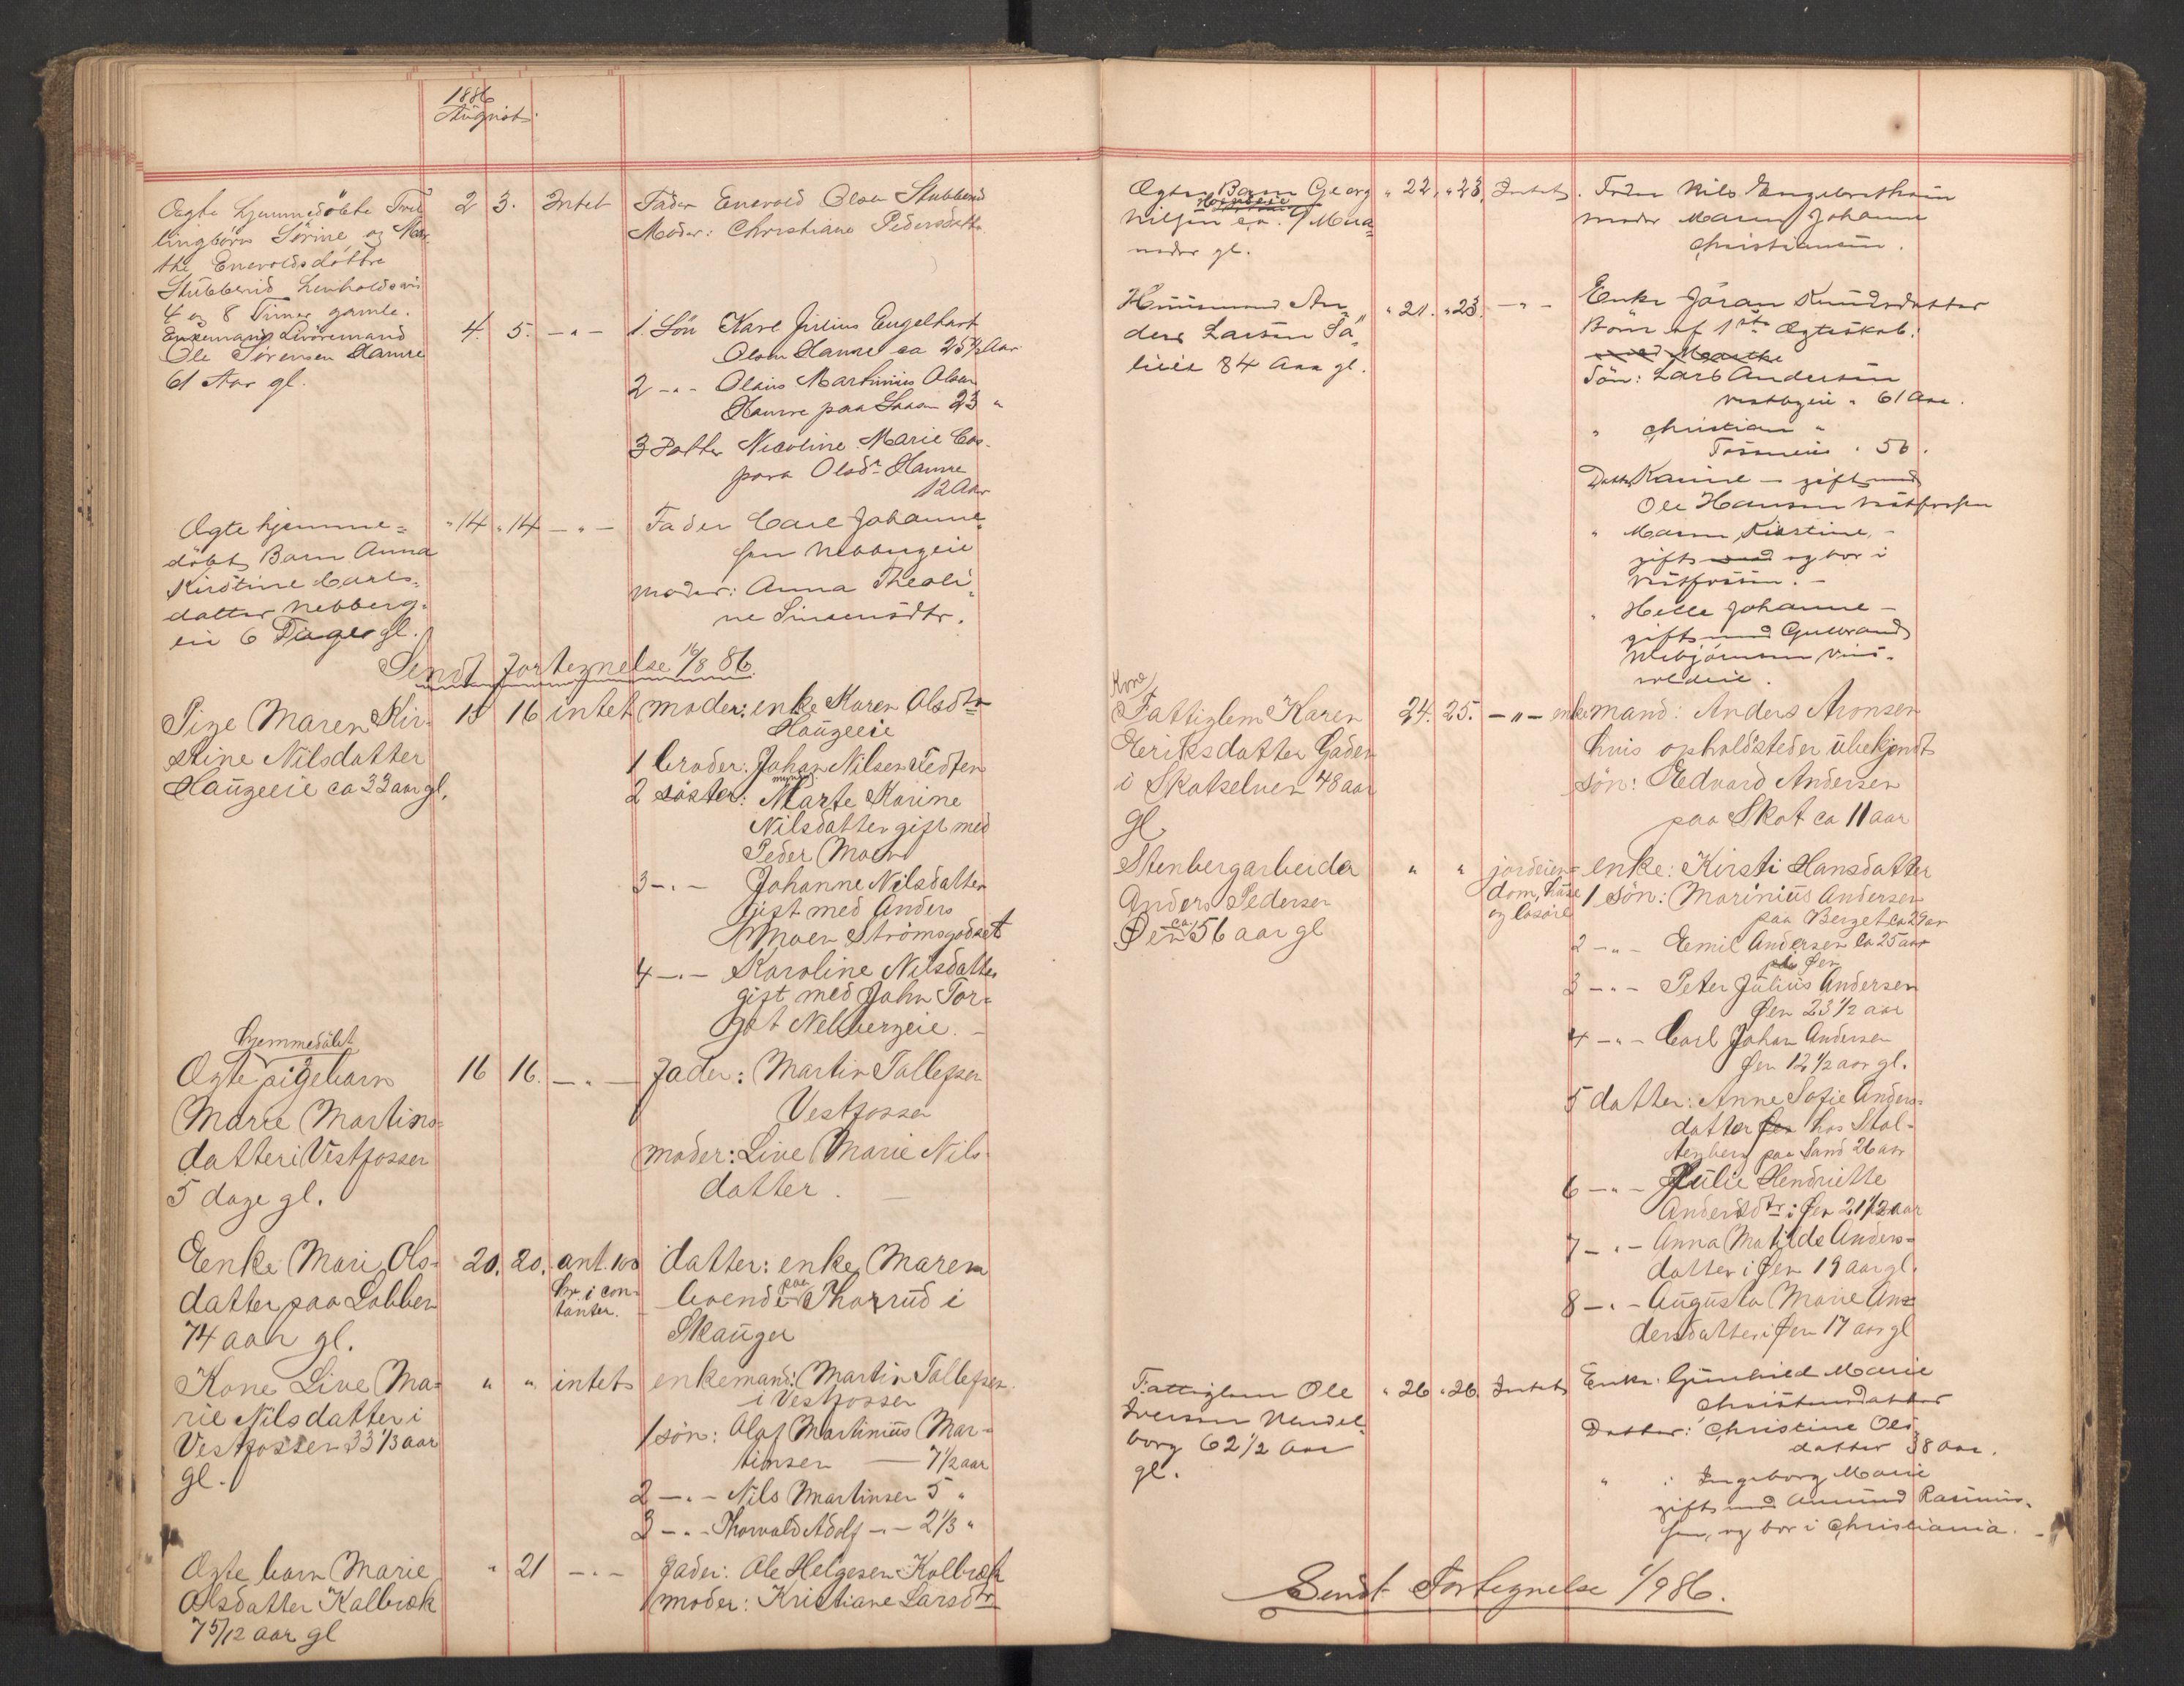 1886
August.
Oegte hjemmedöbte Tvil
lingbörn Sörine og Mar
the Enevoldsdöttre
Stubberud Henholdsvis
4 og 8 Timer gamle.
2 3. Intet
Fader Enevold Olsen Stubberud
Moder: Christiane Pedersdatter
Enkemand
Ole Sörensen Hamre
61 Aar gl.
4. 5. - " -
1. Sön Karl Julius Engelhart
Olsen Hamre ca 25½ Aar
2 - " - Olaus Martinius Olsen
Hamre paa 23 "
3 Datter Nicoline Marie Cas-
para Olsdr Hamre
12 Aar
Ægte hjemme=
döbt Barn Anna
Kirstine Carls-
datter Nebberg-
eie 6 Dage gl.
" 14 " 14 - " -
Fader Carl Johanne-
sen Nebbergeie
Moder: Anna Theoli-
ne Simensdtr.
Sendt Fortegnelse 16/8 86.
Pige Maren Kir-
stine Nilsdatter
Haugeeie ca 33 aar gl.
15 16 intet
moder: enke Karen Olsdtr
Haugeeie
1 broder: Johan Nilsen Tedten
myndig
2 söster: Marte Karine
Nilsdatter gift med
Peder Moen
3 - " - Johanne Nilsdatter
gift med Anders
Moen Strömsgodset
4 - " - Karoline Nilsdatter
gift med John Tor-
get Nebbergeie. -
hjemmedöbt
Ægte pigebarn
Marie Martins=
datter i Vestfossen
5 dage gl.
16 16. - " -
fader: Martin Tallefsen
Vestfossen
moder: Live Marie Nils-
datter. -
Eenke Mari Ols-
datter paa Lobben
74 aar gl.
20. 20. ant. 100
kr i con-
tanter.
datter: enke Maren
boende paa Thorrud i
Skauger
Kone Live Ma-
rie Nilsdatter i
Vestfossen 33 1/3 aar
gl.
" " intet
enkemand: Martin Tallefsen
i Vestfossen
1 sön: Olaf Martinius Mar-
tinsen - 7½ aar
2 - " - Nils Martinsen 5 "
3 - " - Thorvald Adolf - " - 2 1/3 "
Ægte barn Marie
Olsdatter Kolbræk
7 5/12 aar gl
" 21 - " -
fader: Ole Helgesen Kolbræk
moder: Kristiane Larsdtr
Ægte Barn Georg
Nilsen
neder gl.
" 22. " 23. Intet.
Fader Nils Engebrethsen
moder Maren Johanne
Christiansen.
Huusmand An-
ders Larsen Så-
lieie 84 Aar gl.
" 21. " 23. - " -
Enke Jöran Knudsdatter
Börn af 1ste Ægteskab:
Sön: Lars Andersen
Vestbyeie " 61 Aar.
" Christian "
" 56.
Datter Karine - gift med
Ole Hansen Vestfossen
" Maren Kirstine, -
gift og bor i
Vestfossen. -
" Helle Johanne -
gift med Gulbrand
Kone
Fattiglem Karen
Eriksdatter Gaden
i Skotselven 48 aar
gl
24. 25. - " -
enkemand: Anders Aronsen
hvis opholdsteder ubekjendt
sön: Edvard Andersen
paa Skot ca 11 aar
Stenbergarbeider
Anders Pedersen
Øen ca 56 aar gl
" " jordeien-
dom, huse
og lösöre
enke: Kirsti Hansdatter
1 sön: Marinius Andersen
paa Berget ca 29 aar
2 - " - Emil Andersen ca 25 aar
Øen
3 - " - Peter Julius Andersen
Øen 23½ aar
4 - " - Carl Johan Andersen
Øen 12½ aar gl.
5 datter: Anne Sofie Anders-
datter hos Stol-
tenberg paa Sand 26 aar
6 - " - Julie Hendriette
Andersdtr i Øen 21½ aar
7 - " - Anna Matilde Anders-
datter i Øen 19 aar gl.
8 - " - Augusta Marie An-
dersdatter i Øen 17 aar gl
Fattiglem Ole
Iversen Vendel-
borg 62½ Aar
gl.
" 26 " 26. Intet
Enke: Gunhild Marie
Christensdatter
Datter: Christine Ols-
datter 38 Aar.
" : Ingeborg Marie
gift med Amund Rasmus-
sen, og bor i Christiania. -
Sendt Fortegnelse 1/9 86.